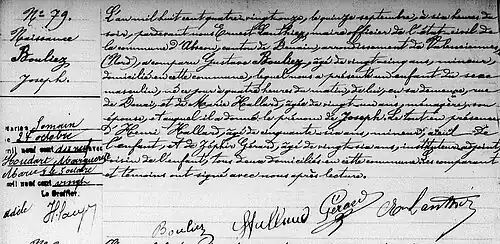 No 79.
Naissance
Bouliez
Joseph.
L'an mil huit cent quatre vingt onze, le quinze septembre, à six heures du
soir, pardevant nous Ernest Lanthier, maire officier de l'état civil de
la commune d'Abscon, canton de Bouchain, arrondissement de Valenciennes
(Nord), a comparu Gustave Bouliez, âgé de vingt cinq ans, mineur,
domicilié en cette commune, lequel nous a présenté un enfant de sexe
masculin, né ce jour à quatre heures du matin, de lui, en sa demeure, rue
de Denain, et de Marie Hulland, âgée de vingt un ans, ménagère, son
épouse, et auquel il a donné le prénom de Joseph. Le tout en présence
d'Henri Hulland, âgé de quarante ans, mineur, aïeul de
l'enfant, et de Zéphir Gérard, âgé de vingt six ans, instituteur adjoint,
voisin de l'enfant, tous deux domiciliés en cette commune, les comparant
et témoins ont signé avec nous après lecture.
Marié à Somain
le 25 octobre
mil neuf cent dix neuf avec
Houdart Marguerite
Marie
mil neuf cent vingt
Le Greffier,
Bouliez Hulland Gérard E. Lanthier